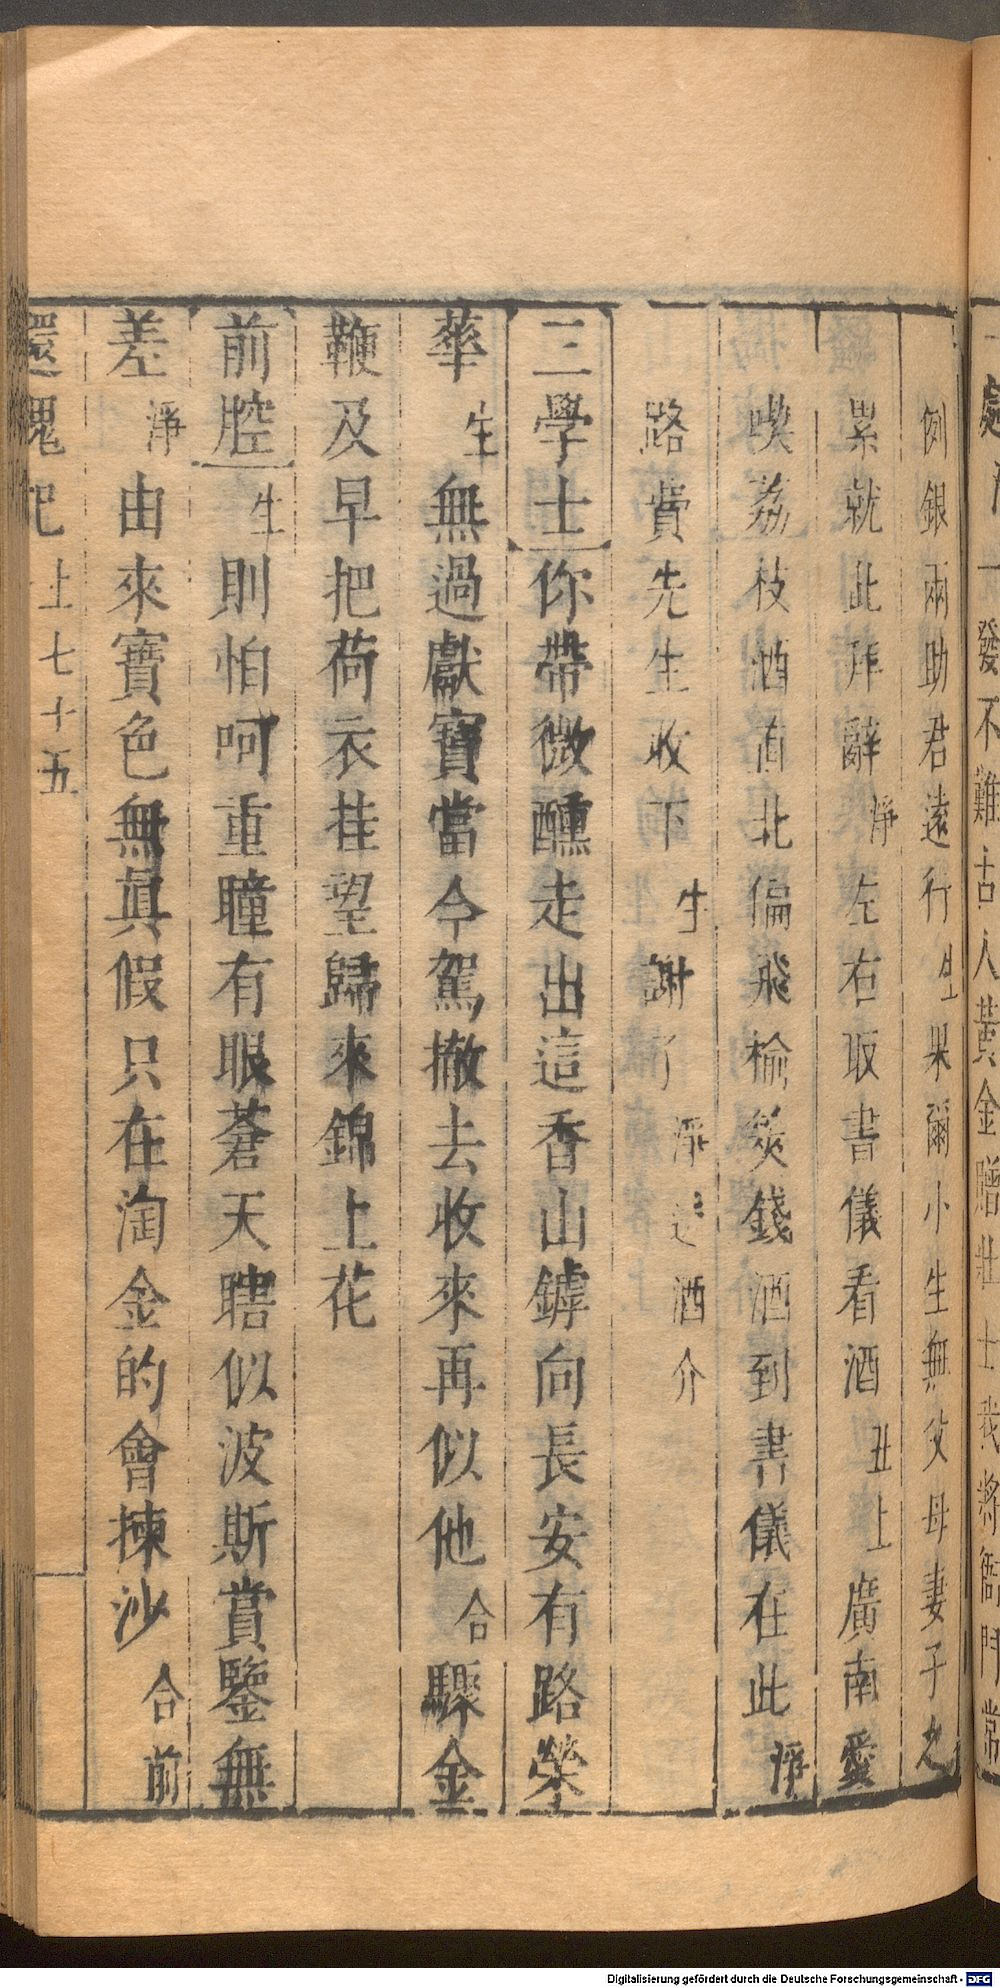 處
一發不難古人黃金贈壯士我將衙門常
例銀兩助君遠行生果爾小生無父母妻子之
累就此拜辭淨左右取書儀看酒丑上廣南愛
喫荔枝酒直北偏飛榆莢錢酒到書儀在此淨
路費先生收下生謝了淨送酒介
三學士你帶微醺走出這香山罅向長安有路榮
華生無過獻寶當今駕撤去收來再似他合驟金
鞭及早把荷衣挂望歸來錦上花
前腔生則怕呵重瞳有眼蒼天瞎似波斯賞鑒無
差淨由來寶色無真假只在淘金的會揀沙合前
還魂記 上 七十五
Digitalisierung gefördert durch die Deutsche Forschungsgemeinschaft - DFG